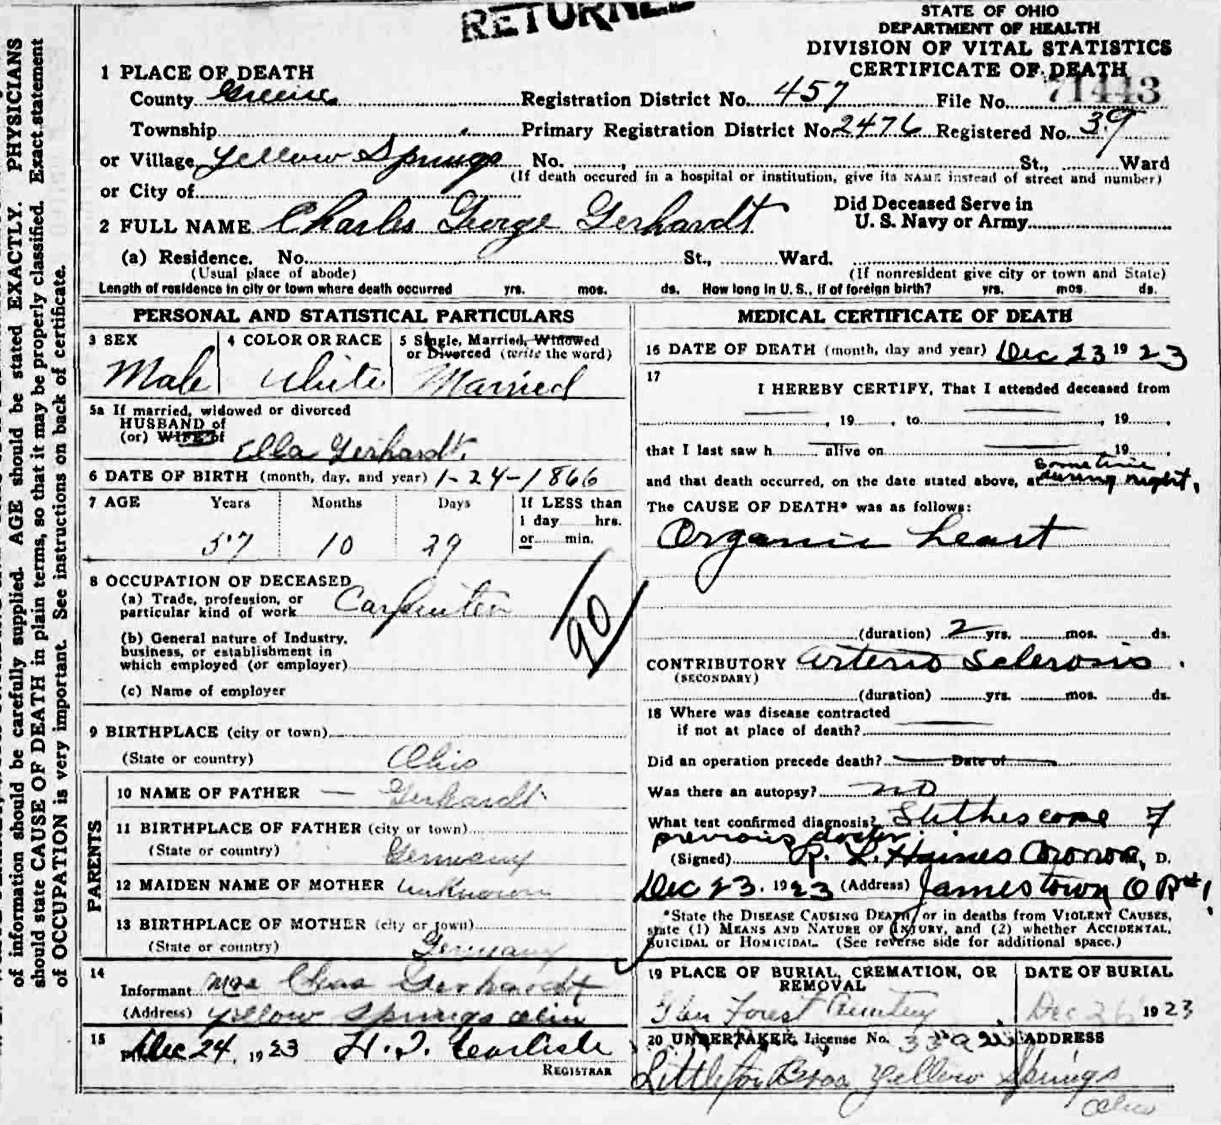 RETURNED
STATE OF OHIO
DEPARTMENT OF HEALTH
DIVISION OF VITAL STATISTICS
CERTIFICATE OF DEATH
1 PLACE OF DEATH
County Greene Registration District No. 457 File No. 71443
Township Primary Registration District No. 2476 Registered No. 39
or Village Yellow Springs No. , St., Ward
(If death occured in a hospital or institution, give its NAME instead of street and number)
or City of
2 FULL NAME Charles George Gerhardt
Did Deceased Serve in
U. S. Navy or Army
(a) Residence. No. St., Ward.
(Usual place of abode) (If nonresident give city or town and State)
Length of residence in city or town where death occurred yrs. mos. ds. How long in U. S., if of foreign birth? yrs. mos. ds.
PERSONAL AND STATISTICAL PARTICULARS
3 SEX 4 COLOR OR RACE 5 Single, Married, Widowed
or Divorced (write the word)
Male White Married
5a If married, widowed or divorced
HUSBAND of
(or) WIFE of Ella Gerhardt
6 DATE OF BIRTH (month, day, and year) 1-24-1866
7 AGE Years Months Days If LESS than
1 day hrs.
or min.
57 10 29
8 OCCUPATION OF DECEASED
(a) Trade, profession, or
particular kind of work Carpenter
90
(b) General nature of Industry,
business, or establishment in
which employed (or employer)
(c) Name of employer
9 BIRTHPLACE (city or town)
(State or country) Ohio
PARENTS
10 NAME OF FATHER — Gerhardt
11 BIRTHPLACE OF FATHER (city or town)
(State or country) Germany
12 MAIDEN NAME OF MOTHER unknown
13 BIRTHPLACE OF MOTHER (city or town)
(State or country) Germany
14
Informant Mrs Chas Gerhardt
(Address) Yellow Springs Ohio
15 Dec 24, 1923
REGISTRAR
MEDICAL CERTIFICATE OF DEATH
16 DATE OF DEATH (month, day and year) Dec 23 1923
17
I HEREBY CERTIFY, That I attended deceased from
, 19 , to , 19 ,
that I last saw h alive on 19 ,
and that death occurred, on the date stated above, at sometime during night.
The CAUSE OF DEATH* was as follows:
Organic heart
(duration) 2 yrs. mos. ds.
CONTRIBUTORY Arterio Sclerosis.
(SECONDARY)
(duration) yrs. mos. ds.
18 Where was disease contracted
if not at place of death?
Did an operation precede death? Date of
Was there an autopsy? no
What test confirmed diagnosis? Stithescope &
previous doctor.
(Signed) R. L. Haines Coroner, M. D.
Dec 23. 1923 (Address) Jamestown O R#1
*State the DISEASE CAUSING DEATH, or in deaths from VIOLENT CAUSES,
state (1) MEANS AND NATURE OF INJURY, and (2) whether ACCIDENTAL,
SUICIDAL or HOMICIDAL. (See reverse side for additional space.)
19 PLACE OF BURIAL, CREMATION, OR
REMOVAL
DATE OF BURIAL
Glen Forest Cemetery Dec 26 1923
20 UNDERTAKER, License No. ADDRESS
Littleton Bros Yellow Springs
Ohio
of information should be carefully supplied. AGE should be stated EXACTLY. PHYSICIANS
should state CAUSE OF DEATH in plain terms, so that it may be properly classified. Exact statement
of OCCUPATION is very important. See instructions on back of certificate.